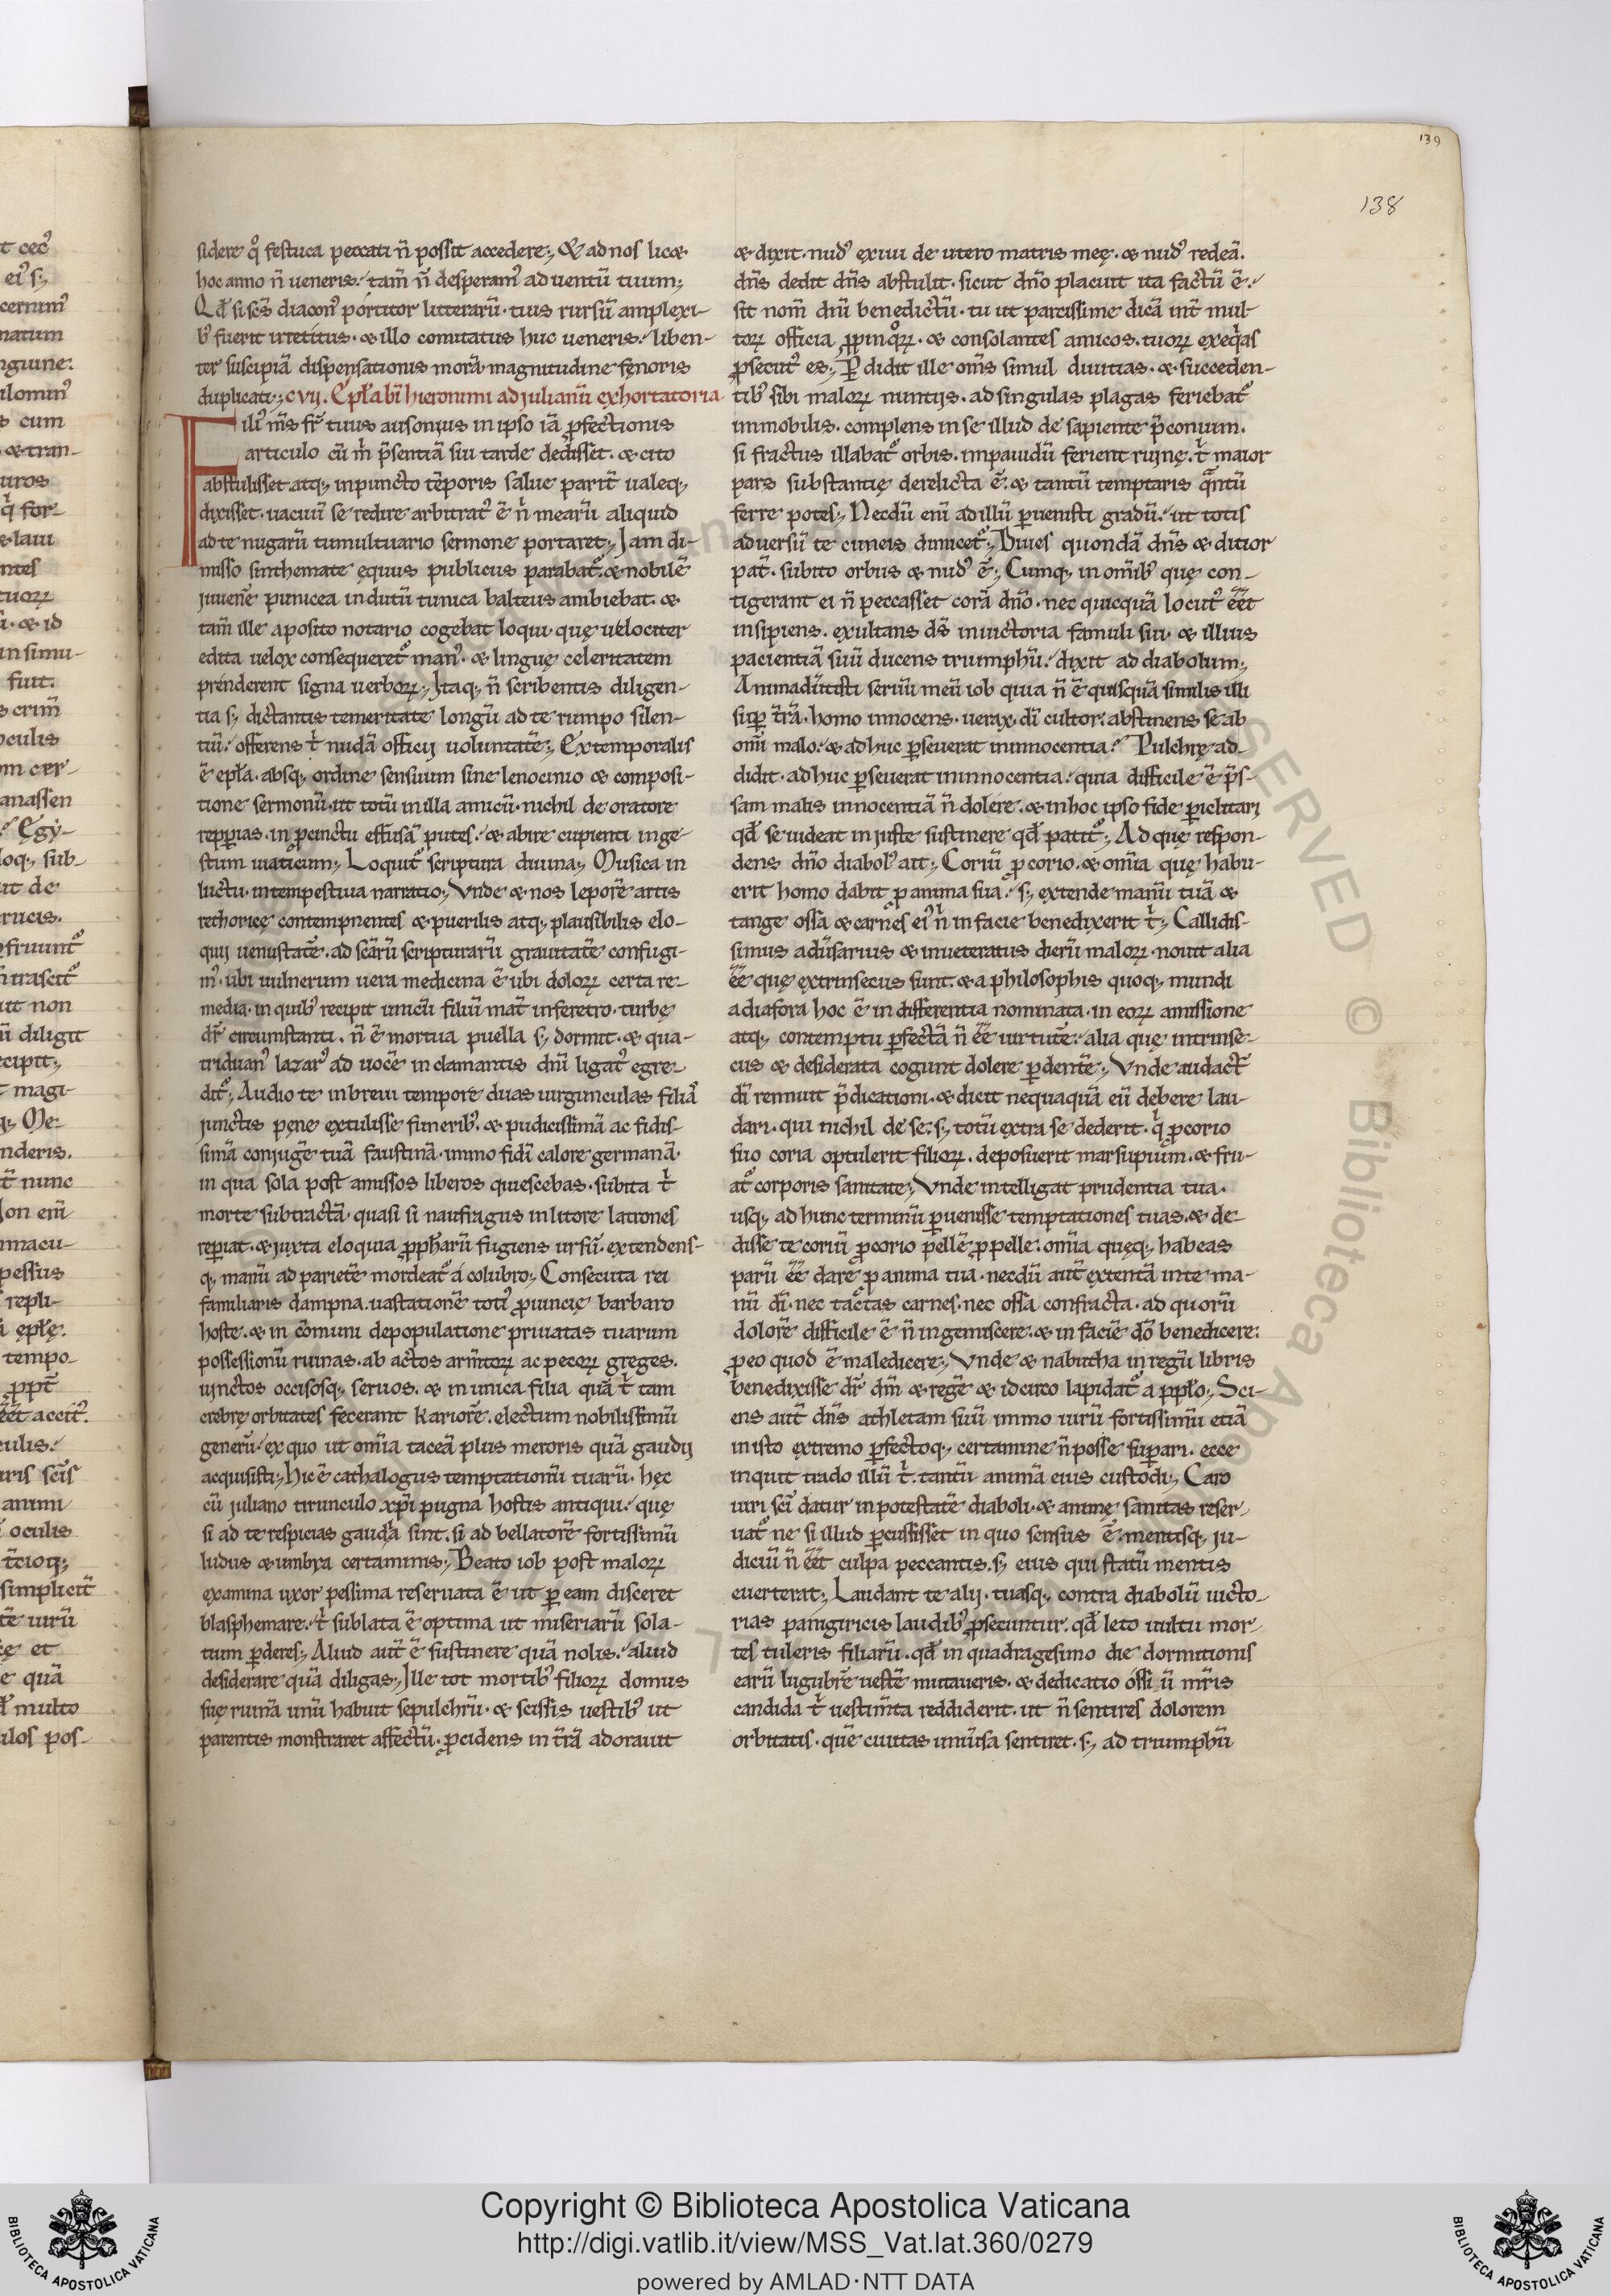 139
138
sidere q̊ festuca peccati n̄ possit accedere; & ad nos lic&
hoc anno n̄ ueneris. tam̄ n̄ desperam᾽ aduentū tuum;
Qd̄ si sc̄s diacon᾽ portitor litterarū. tuis rursū amplexi-
b᾽ fuerit irretitus. & illo comitatus huc ueneris. liben-
ter suscipiā dispensationis morā. magnitudine fęnoris
duplicati; cvij. Epła bī hieronimi ad julianū exhortatoria
Fili᾽ m̄s fr̄ tuus ausonius in ipso iā ꝓfectionis
articulo cū m̍ p̄sentiā sui tarde dedisset. & cito
abstulisset atq; in puncto tēporis salue parit̄ ualeq;
dixisset. uacuū se redire arbitrat᾽ ē n̍ mearū aliquid
ad te nugarū tumultuario sermone portaret; Jam di-
misso sinthemate ęquus publicus parabat᷑. & nobilē
juuenē punicea indutū tunica balteus ambiebat. &
tam̄ ille aposito notario cogebat loqui. quę uelociter
edita uelox consequeret᷑ man᾽. & linguę celeritatem
prenderent signa uerboꝝ; Itaq; n̄ scribentis diligen-
tia s; dictantis temeritate longū ad te rumpo silen-
tiū. offerens t̍ nudā officij uoluntatē; Extemporalis
ē epła. absq; ordine sensuum sine lenocinio & composi-
tione sermonū. ut totū in illa amicū. nichil de oratore
repperias. in ꝓcinctu effusā putes. & abire cupienti inge-
stum uiaticum; Loquit᷑ scriptura diuina; Musica in
luctu. intempestiua narratio; Vnde & nos leporē artis
rethoricę contempnentes & puerilis atq; plausibilis elo-
quij uenustatē. ad scārū scripturarū grauitatē confugi-
m᾽. ubi uulnerum uera medicina ē ubi doloꝝ certa re-
media. in quib᾽ recipit unicū filiū mat̄ in feretro. turbę
dr̄ circumstanti. n̄ ē mortua puella s; dormit. & qua-
triduan᾽ lazar᾽ ad uocē inclamantis dn̄i ligat᾽ egre-
dit᷑; Audio te in breui tempore duas uirgunculas filiā᾽
junctis pęne extulisse funerib᾽. & pudicissimā ac fidis-
simā conjugē tuā faustinā. immo fidī calore germanā.
in qua sola post amissos liberos quiescebas. subita t̍
morte subtractā. quasi si naufragus in litore latrones
reperiat. & juxta eloquia ꝓpharū fugiens ursū. extendens-
q; manū ad parietē mordeat᷑ á colubro; Consecuta rei
familiaris dampna. uastationē toti᾽ ꝓuincię barbaro
hoste. & in cōmuni depopulatione priuatas tuarum
possessionū ruinas. ab actos arm̄toꝝ ac pecoꝝ greges.
uinctos occisosq; seruos. & in unica filia quā t̍ tam
crebrę orbitates fecerant kariorē. electum nobilissimū
generū. ex quo ut om̄ia taceā plus meroris quā gaudij
acquisisti; Hic ē cathalogus temptationū tuarū. hęc
cū juliano tirunculo xp̄i pugna hostis antiqui. quę
si ad te respicias gaudia sint. si ad bellatorē fortissimū
ludus & umbra certaminis; Beato iob post maloꝝ
examina uxor pessima reseruata ē ut ꝑ eam disceret
blasphemare. t̍ sublata ē optima ut miseriarū sola-
tium ꝑderes; Aliud aut̄ ē sustinere quā nolis. aliud
desiderare quā diligas; Ille tot mortib᾽ filioꝝ domus
suę ruinā unū habuit sepulchrū. & scissis uestib᾽ ut
parentis monstraret affectū. ꝓcidens in t̄rā adorauit
& dixit. nud᾽ exiui de utero matris meę. & nud᾽ redeā.
dn̄s dedit dn̄s abstulit. sicut dn̄o placuit ita factū ē.
sit nom̄ dn̄i benedictū. tu ut parcissime dicā int̄ mul-
toꝝ officia ꝓpinq̊ꝝ. & consolantes amicos. tuoꝝ exeq̍as
ꝓsecut᾽ es; Ꝑdidit ille om̄s simul diuitias. & succeden-
tib᾽ sibi maloꝝ nuntijs. ad singulas plagas feriebat᷑
immobilis. complens in se illud de sapiente p̄conium.
si fractus illabat᷑ orbis. impauidū ferient ruinę. t̍ maior
pars substantię derelicta ē. & tantū temptaris qᷓntū
ferre potes; Necdū eni ad illū ꝑuenisti gradū. ut totis
aduersū te cuneis dimicet᷑; Diues quondā dn̄s & ditior
pat̄. subito orbus & nud᾽ ē; Cumq; in om̄ib᾽ quę con-
tigerant ei n̄ peccasset corā dn̄o. nec quicquā locut᾽ ēēt
insipiens. exultans ds̄ in uictoria famuli sui. & illius
pacientiā suū ducens triumphū. dixit ad diabolum;
Animaduertisti seruū meū iob quia n̄ ē quisquā similis illi
suꝑ t̄rā. homo innocens. uerax. dī cultor. abstinens se ab
om̄i malo. & adhuc ꝑseuerat in innocentia. Pulchrę ad-
didit. adhuc ꝑseuerat in innocentia. quia difficile ē p̄s-
sam malis innocentiā n̄ dolere. & in hoc ipso fide ꝑiclitari
qd̄ se uideat injuste sustinere qd̄ patit᷑; Ad quę respon-
dens dn̄o diabol᾽ ait; Coriū ꝓ corio. & om̄ia quę habu-
erit homo dabit ꝓ anima sua. s; extende manū tuā &
tange ossa & carnes ei᾽ n̍ in facie benedixerit t̍; Callidis-
simus adūsarius & inueteratus dierū maloꝝ. nouit alia
ēē quę extrinsecus sunt. & a philosophis quoq; mundi
adiafora hoc ē indifferentia nominata. in eoꝝ amissione
atq; contemptu ꝑfectā n̄ ēē uirtutē. alia quę intrinse-
cus & desiderata cogunt dolere ꝑdentē; Vnde audact̄
dī rennuit p̄dicationi. & dicit nequaquā eū debere lau-
dari. qui nichil de se. s; totū extra se dederit. q̍ ꝓ corio
suo coria optulerit filioꝝ. deposuerit marsupium. & fru-
at᷑ corporis sanitate; Vnde intelligat prudentia tua.
usq; ad hunc terminū ꝑuenisse temptationes tuas. & de-
disse te coriū ꝓ corio pellē ꝓ pelle. om̄ia quęq; habeas
parū ēē dare ꝓ anima tua. necdū aut̄ extentā in te ma-
nū dī. nec tactas carnes. nec ossa confracta. ad quorū
dolorē difficile ē n̄ ingemiscere. & in faciē dō benedicere:
ꝓ eo quod ē maledicere; Vnde & nabutha in regū libris
benedixisse dr̄ dm̄ & regē & idcirco lapidat᷑ a ppło; Sci-
ens aut̄ dn̄s athletam suū immo uirū fortissimū etiā
in isto extremo ꝑfectoq; certamine n̄ posse suꝑari. ecce
inquit trado illū t̍. tantū animā eius custodi; Caro
uiri scī datur in potestatē diaboli. & animę sanitas reser-
uat᷑ ne si illud ꝑcussisset in quo sensus ē. mentisq; ju-
diciū n̄ ēēt culpa peccantis. s; eius qui statū mentis
euerterat; Laudant te alij. tuasq; contra diabolū uicto-
rias panigiricis laudib᾽ ꝓsecuntur. qd̄ leto uultu mor-
tes tuleris filiarū. qd̄ in quadragesimo die dormitionis
earū lugubrē uestē mutaueris. & dedicatio ossiū m̄ris
candida t̍ uestim̄ta reddiderit. ut n̄ sentires dolorem
orbitatis. quē ciuitas uniūsa sentiret. s; ad triumphū
Copyright © Biblioteca Apostolica Vaticana
http://digi.vatlib.it/view/MSS_Vat.lat.360/0279
powered by AMLAD·NTT DATA
BIBLIOTECA APOSTOLICA VATICANA
BIBLIOTECA APOSTOLICA VATICANA